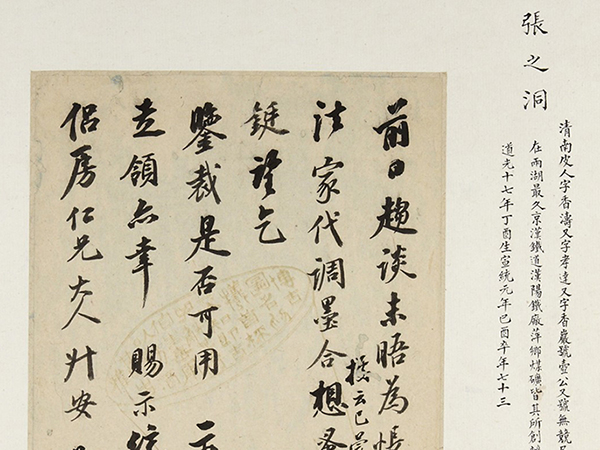 張之洞
清南皮人字香濤又字孝達又字香巖號壺公又號無競居
在兩湖最久京漢鐵道漢陽鐵廠萍鄉煤礦皆其所創
道光十七年丁酉生宣統元年己酉卒年七十三
前日趨談未晤為悵
據云已
法家代調墨合想蚤
鋌望乞
鑒裁是否可用
走領亦幸 賜示
侶房仁兄大人升安